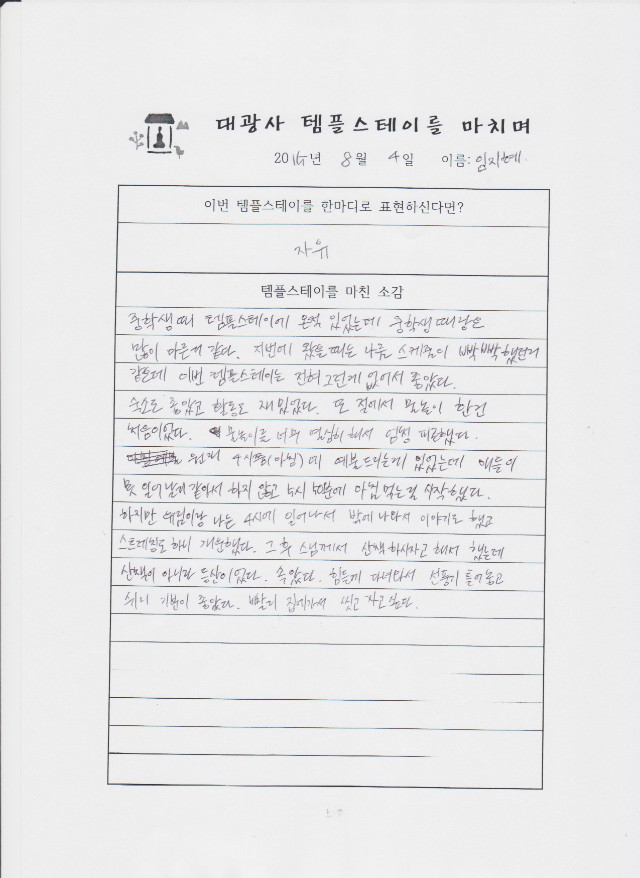 대광사 템플스테이를 마치며
2014년 8월 4일 이름: 임지혜
이번 템플스테이를 한마디로 표현하신다면?
자유
템플스테이를 마친 소감
중학생때 템플스테이에 온적 있었는데 중학생때랑은
많이 다른게 같다. 저번에 왔을때는 나름 스케줄이 빡빡했던거
같은데 이번 템플스테이는 전혀 그런게 없어서 좋았다.
숙소도 좋았고 활동도 재밌었다. 또 절에서 물놀이 한건
처음이었다. 물놀이를 너무 열심히 해서 엄청 피곤했다.
원래 4시쯤(아침)에 예불드리는게 있었는데 애들이
못 일어날거 같아서 하지 않고 5시 50분에 아침먹는걸 시작했다.
하지만 나는 4시에 일어나서 밖에 나와서 이야기도 했고
스트레칭도 하니 개운했다. 그 후 스님께서 산책하시자고 해서 했는데
산책이 아니라 등산이었다. 속았다. 힘들게 다녀와서 선풍기 틀어놓고
쉬니 기분이 좋았다. 빨리 집에가서 씻고 자고 싶다.